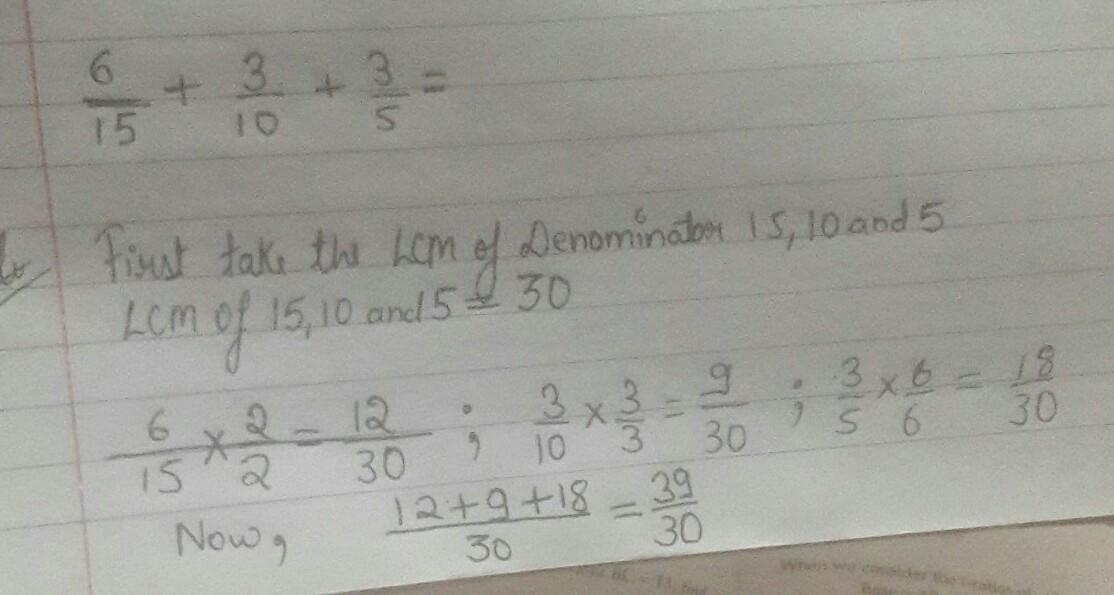 6/15 + 3/10 + 3/5 =
First take the LCM of Denominator 15, 10 and 5
LCM of 15, 10 and 5 = 30
6/15 × 2/2 = 12/30 ; 3/10 × 3/3 = 9/30 ; 3/5 × 6/6 = 18/30
Now, 12+9+18/30 = 39/30
When we consider the